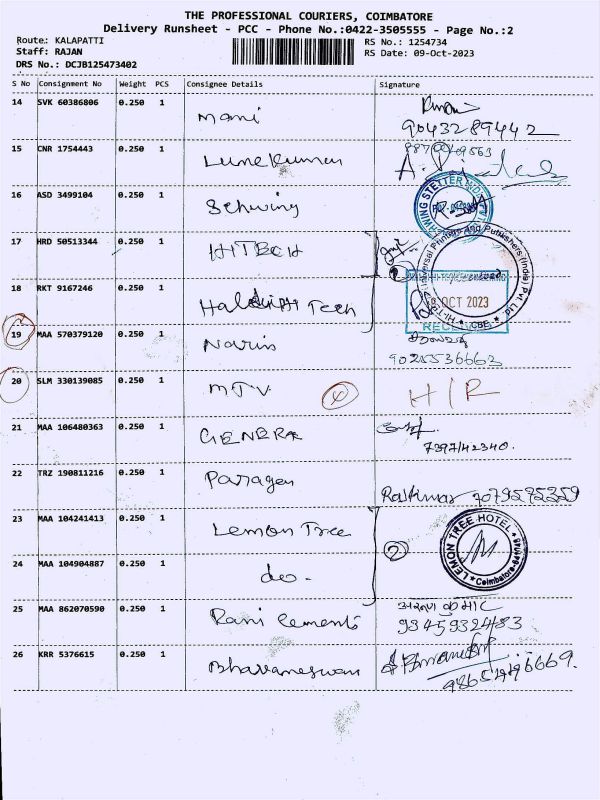 THE PROFESSIONAL COURIERS, COIMBATORE
Delivery Runsheet - PCC - Phone No.:0422-3505555 - Page No.:2
Route: KALAPATTI
Staff: RAJAN
DRS No.: DCJB125473402
RS No.: 1254734
RS Date: 09-Oct-2023
S No Consignment No Weight PCS Consignee Details Signature
14 SVK 60386806 0.250 1 Mani
9043289442
15 CNR 1754443 0.250 1
16 ASD 3499104 0.250 1 Schwing
17 HRD 50513344 0.250 1 HITECH
18 RKT 9167246 0.250 1 Tech
OCT 2023
RECEIVED
19 MAA 570379120 0.250 1
9025536663
20 SLM 330139085 0.250 1 MTV 4 H/R
21 MAA 106480363 0.250 1 GENERA
7397142340.
22 TRZ 190811216 0.250 1 Paragon
Rajkumar 7079595359
23 MAA 104241413 0.250 1 Lemon Tree
2
LEMON TREE HOTEL
Coimbatore
24 MAA 104904887 0.250 1 do -
25 MAA 862070590 0.250 1 Rani Cements
9345932483
26 KRR 5376615 0.250 1 Bhavaneswari